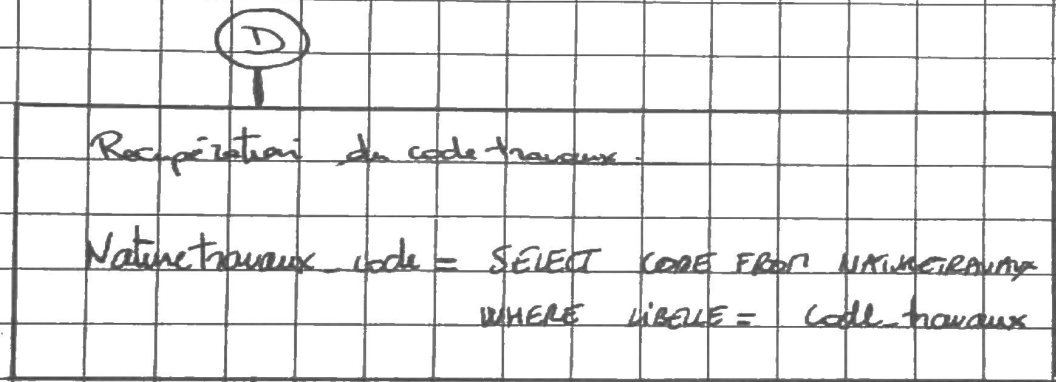 D
Recupération du code travaux.
Naturetravaux_code = SELECT CODE FROM NATURETRAVAUX
WHERE LIBELLE = code_travaux